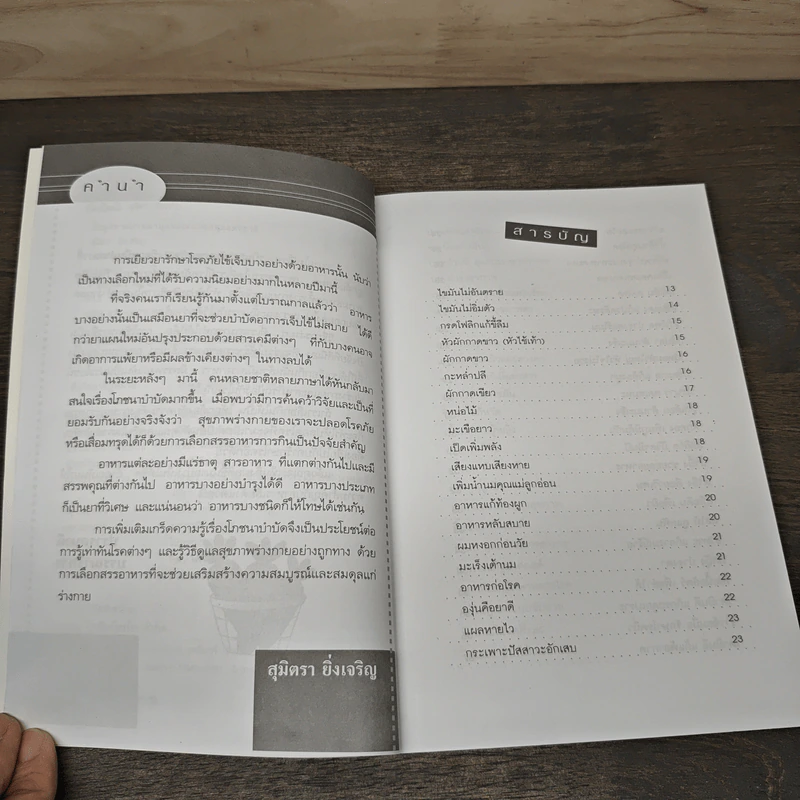 คำนำ
การเยียวยารักษาโรคภัยไข้เจ็บบางอย่างด้วยอาหารนั้น นับว่า
เป็นทางเลือกใหม่ที่ได้รับความนิยมอย่างมากในหลายปีมานี้
ที่จริงคนเราก็เรียนรู้กันมาตั้งแต่โบราณกาลแล้วว่า อาหาร
บางอย่างนั้นเป็นเสมือนยาที่จะช่วยบำบัดอาการเจ็บไข้ไม่สบาย ได้ดี
กว่ายาแผนใหม่อันปรุงประกอบด้วยสารเคมีต่างๆ ที่กับบางคนอาจ
เกิดอาการแพ้ยาหรือมีผลข้างเคียงต่างๆ ในทางลบได้
ในระยะหลังๆ มานี้ คนหลายชาติหลายภาษาได้หันกลับมา
สนใจเรื่องโภชนาบำบัดมากขึ้น เมื่อพบว่ามีการค้นคว้าวิจัยและเป็นที่
ยอมรับกันอย่างจริงจังว่า สุขภาพร่างกายของเราจะปลอดโรคภัย
หรือเสื่อมทรุดได้ก็ด้วยการเลือกสรรอาหารการกินเป็นปัจจัยสำคัญ
อาหารแต่ละอย่างมีแร่ธาตุ สารอาหาร ที่แตกต่างกันไปและมี
สรรพคุณที่ต่างกันไป อาหารบางอย่างบำรุงได้ดี อาหารบางประเภท
ก็เป็นยาที่วิเศษ และแน่นอนว่า อาหารบางชนิดก็ให้โทษได้เช่นกัน
การเพิ่มเติมเกร็ดความรู้เรื่องโภชนาบำบัดจึงเป็นประโยชน์ต่อ
การรู้เท่าทันโรคต่างๆ และรู้วิธีดูแลสุขภาพร่างกายอย่างถูกทาง ด้วย
การเลือกสรรอาหารที่จะช่วยเสริมสร้างความสมบูรณ์และสมดุลแก่
ร่างกาย
สุมิตรา ยิ่งเจริญ
สารบัญ
ไขมันไม่อันตราย 13
ไขมันไม่อิ่มตัว 14
กรดโฟลิกแก้ขี้ลืม 15
หัวผักกาดขาว (หัวไช้เท้า) 15
ผักกาดขาว 16
กะหล่ำปลี 16
ผักกาดเขียว 17
หน่อไม้ 18
มะเขือยาว 18
เป็ดเพิ่มพลัง 18
เสียงแหบเสียงหาย 19
เพิ่มน้ำนมคุณแม่ลูกอ่อน 19
อาหารแก้ท้องผูก 20
อาหารหลับสบาย 20
ผมหงอกก่อนวัย 21
มะเร็งเต้านม 21
อาหารก่อโรค 22
องุ่นคือยาดี 22
แผลหายไว 23
กระเพาะปัสสาวะอักเสบ 23